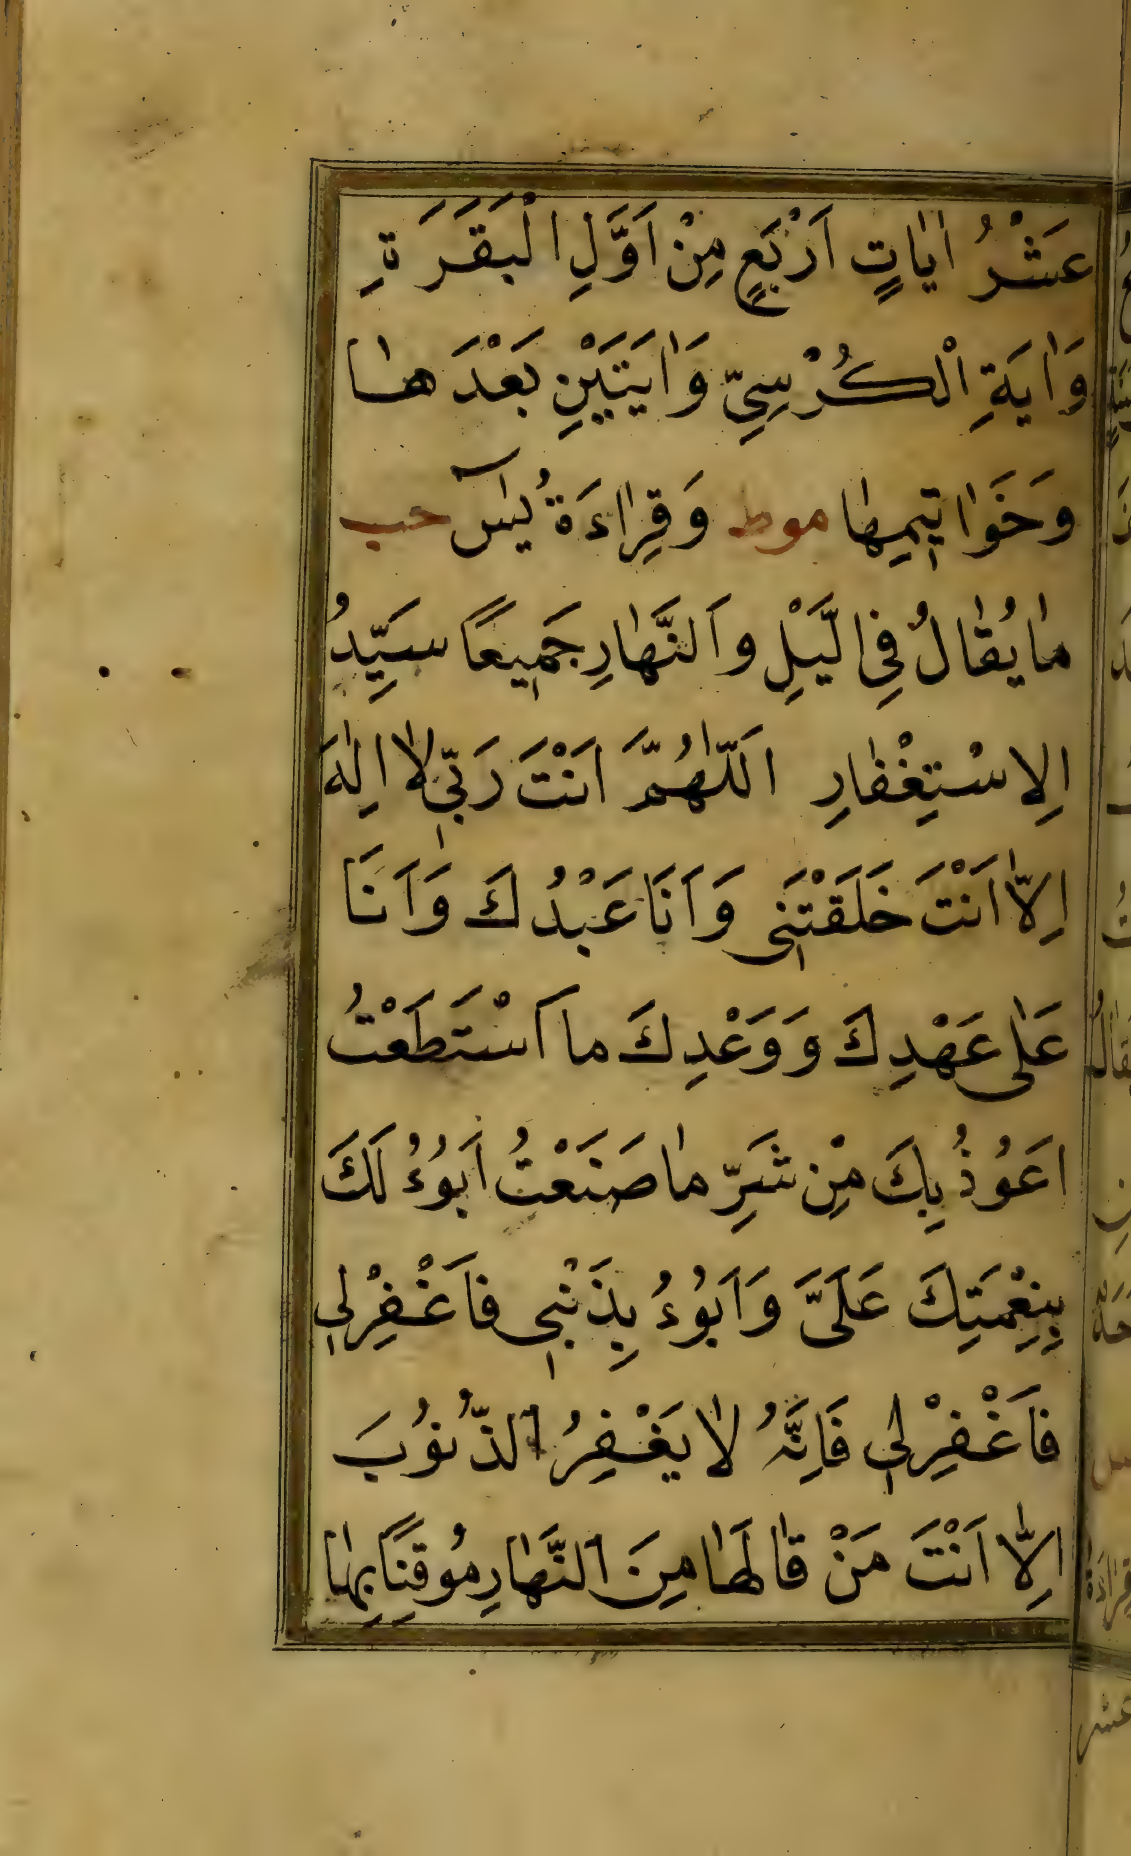 عَشْرُ اٰيٰاتٍ اَرْبَعٍ مِنْ اَوَّلِ الْبَقَرَةِ
وَاٰيَةِ الْكُرْسِيِّ وَاٰيَتَيْنِ بَعْدَهٰا
وَخَوٰاتِيمِهٰا موط وَقِرٰاءَةُ يٰسٓ حب
مٰا يُقٰالُ فِي الَّيْلِ وَالنَّهٰارِ جَمِيعًا سَيِّدُ
اِلاسْتِغْفٰارِ اَللّٰهُمَّ اَنْتَ رَبّي لٰا اِلٰهَ
اِلّٰا اَنْتَ خَلَقْتَنِي وَاَنَا عَبْدُكَ وَاَنَا
عَلٰى عَهْدِكَ وَوَعْدِكَ ما اَسْتَطَعْتُ
اَعُوُذُ بِكَ مِنْ شَرِّ مٰا صَنَعْتُ اَبُوُءُ لَكَ
بِنِعْمَتِكَ عَلَىَّ وَاَبُوُءُ بِذَنْبِي فاَغْفِرْلِي
فاَغْفِرْلِي فَاِنَّهُ لٰا يَغْفِرُ الذُّنوُبَ
اِلّٰا اَنْتَ مَنْ قٰالَهٰا مِنَ النَّهٰارِ مُوقِنًا بِهٰا